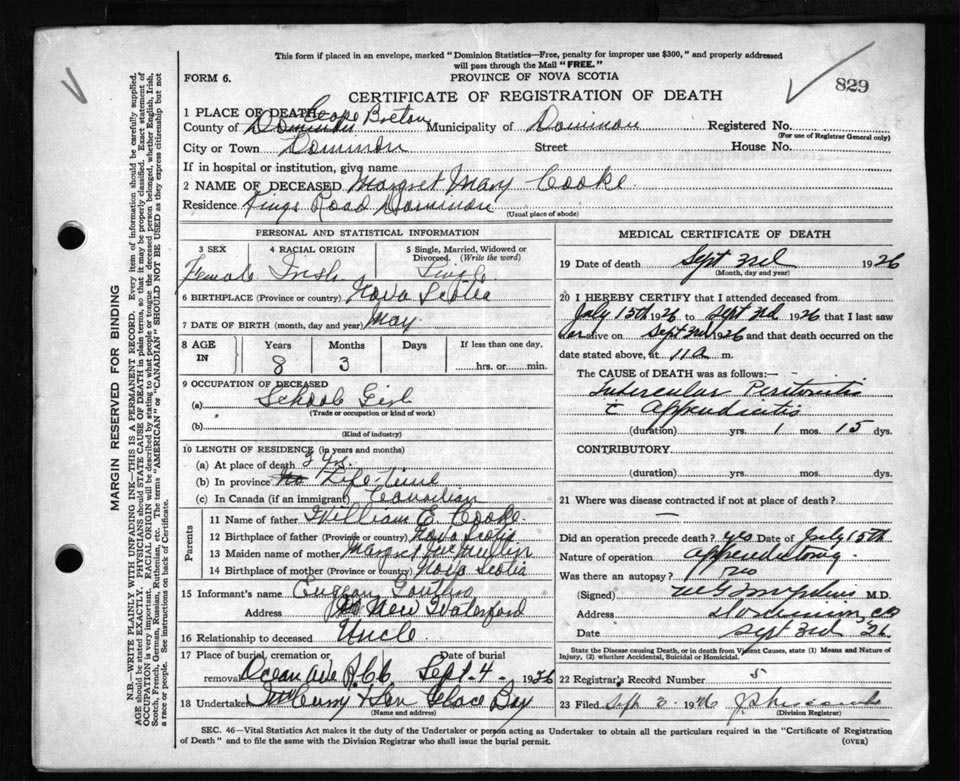 This form if placed in an envelope, marked "Dominion Statistics—Free, penalty for improper use $300," and properly addressed
will pass through the Mail "FREE."
FORM 6.
PROVINCE OF NOVA SCOTIA
829
CERTIFICATE OF REGISTRATION OF DEATH
1 PLACE OF DEATH Cape Breton
County of Dominion Municipality of Dominion Registered No.
(For use of Registrar General only)
City or Town Dominion Street House No.
If in hospital or institution, give name
2 NAME OF DECEASED Margret Mary Cooke
Residence Kings Road Dominion
(Usual place of abode)
PERSONAL AND STATISTICAL INFORMATION
3 SEX 4 RACIAL ORIGIN 5 Single, Married, Widowed or
Divorced. (Write the word)
Female Irish Single
6 BIRTHPLACE (Province or country) Nova Scotia
7 DATE OF BIRTH (month, day and year) May
8 AGE IN Years Months Days If less than one day,
8 3 hrs. or min.
9 OCCUPATION OF DECEASED
(a) School Girl
(Trade or occupation or kind of work)
(b)
(Kind of industry)
10 LENGTH OF RESIDENCE (in years and months)
(a) At place of death
(b) In province Life Time
(c) In Canada (if an immigrant) Canadian
Parents
11 Name of father William E. Cooke
12 Birthplace of father (Province or country) Nova Scotia
13 Maiden name of mother Margret
14 Birthplace of mother (Province or country) Nova Scotia
15 Informant's name
Address New Waterford
16 Relationship to deceased Uncle
17 Place of burial, cremation or Date of burial
removal Ocean Ave Sept. 4 - 1926
18 Undertaker McCurry & Son Glace Bay
(Name and address)
MEDICAL CERTIFICATE OF DEATH
19 Date of death Sept 3rd 1926
(Month, day and year)
20 I HEREBY CERTIFY that I attended deceased from
July 15th 1926 to Sept 3rd 1926 that I last saw
her alive on Sept 3rd 1926 and that death occurred on the
date stated above, at 11 a m.
The CAUSE of DEATH was as follows:—
Tubercular Peritonitis
c̄ Appendicitis
(duration) yrs. 1 mos. 15 dys.
CONTRIBUTORY
(duration) yrs. mos. dys.
21 Where was disease contracted if not at place of death?
Did an operation precede death? yes Date of July 15th
Nature of operation
Was there an autopsy? no
(Signed) M.D.
Address Dominion, CB
Date Sept 3rd 26
State the Disease causing Death, or in death from Violent Causes, state (1) Means and Nature of
Injury, (2) whether Accidental, Suicidal or Homicidal.
22 Registrar's Record Number 5
23 Filed Sept 3 1926
(Division Registrar)
SEC. 46—Vital Statistics Act makes it the duty of the Undertaker or person acting as Undertaker to obtain all the particulars required in the "Certificate of Registration
of Death" and to file the same with the Division Registrar who shall issue the burial permit.
(OVER)
MARGIN RESERVED FOR BINDING
N.B.—WRITE PLAINLY WITH UNFADING INK—THIS IS A PERMANENT RECORD. Every item of information should be carefully supplied.
AGE should be stated EXACTLY. PHYSICIANS should STATE CAUSE OF DEATH in plain terms, so that it may be properly classified. Exact statement of
OCCUPATION is very important. RACIAL ORIGIN will be described by stating to what people or tongue the deceased person belonged, whether English, Irish,
Scotch, French, German, Russian, Ruthenian, etc. The terms "AMERICAN" or "CANADIAN" SHOULD NOT BE USED as they express citizenship but not
a race or people. See instructions on back of Certificate.